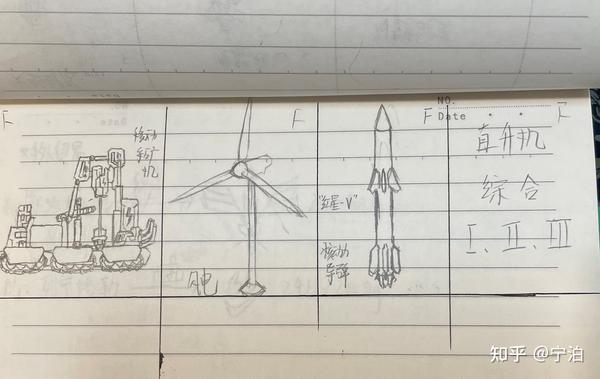 F
移动
采矿
机
F
风电
F
"红星-V"
导弹
NO.
Date
F
直升机
综合
I、II、III
知乎 @宁泊